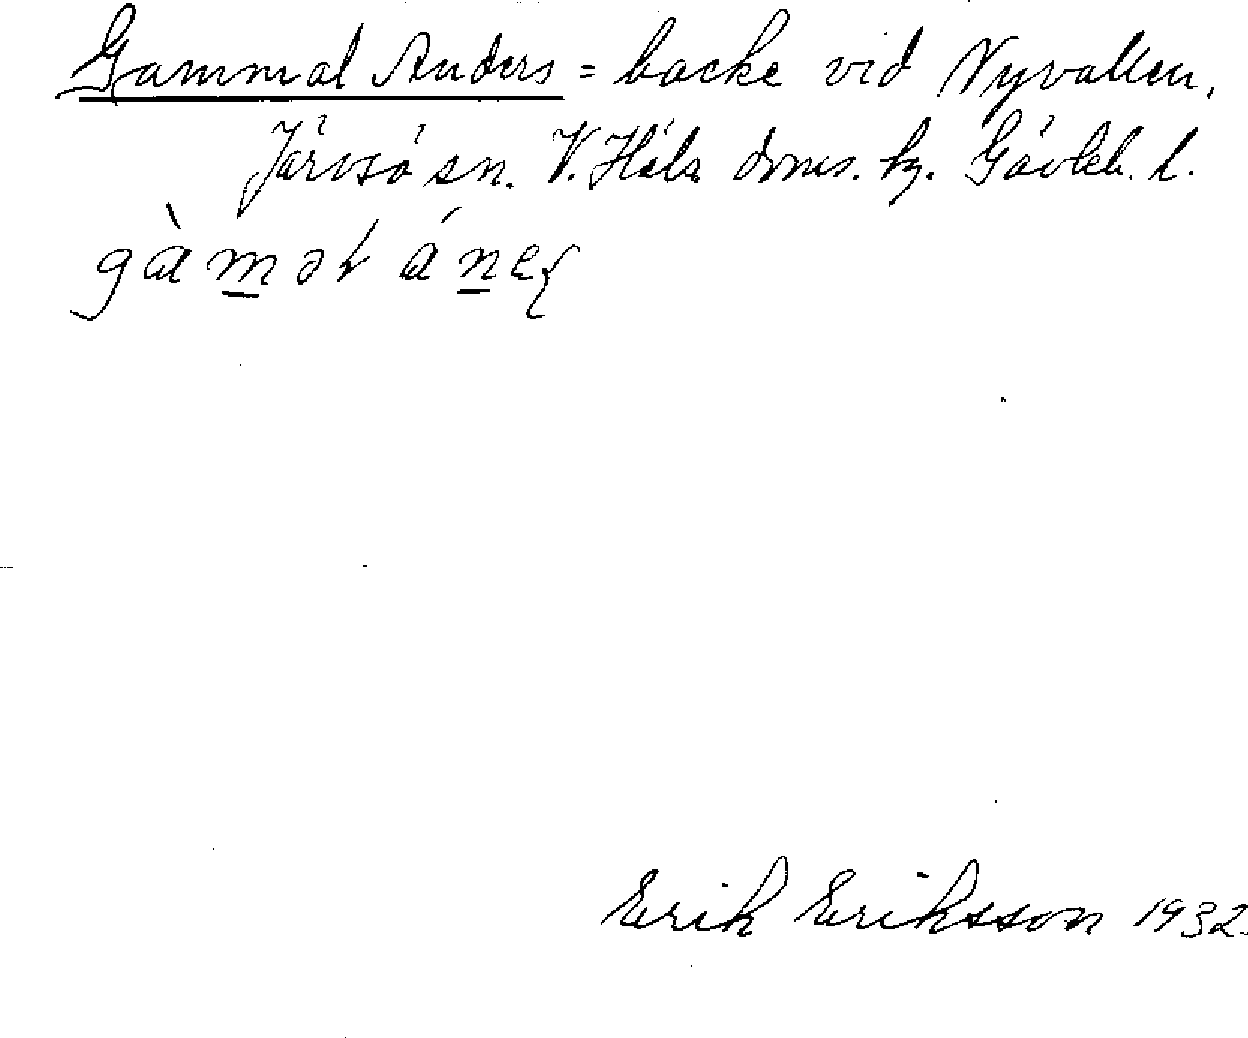 Gammal Anders = backe vid Nyvallen,
Järvsö sn. V. Häls. doms. hg. Gävleb. l.
gàm̲əł án̲eʂ
Erik Eriksson 1932.